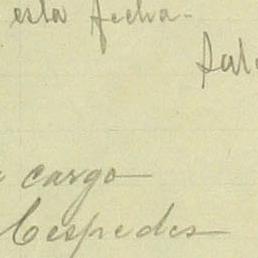 esta fecha.
cargo
Cespedes